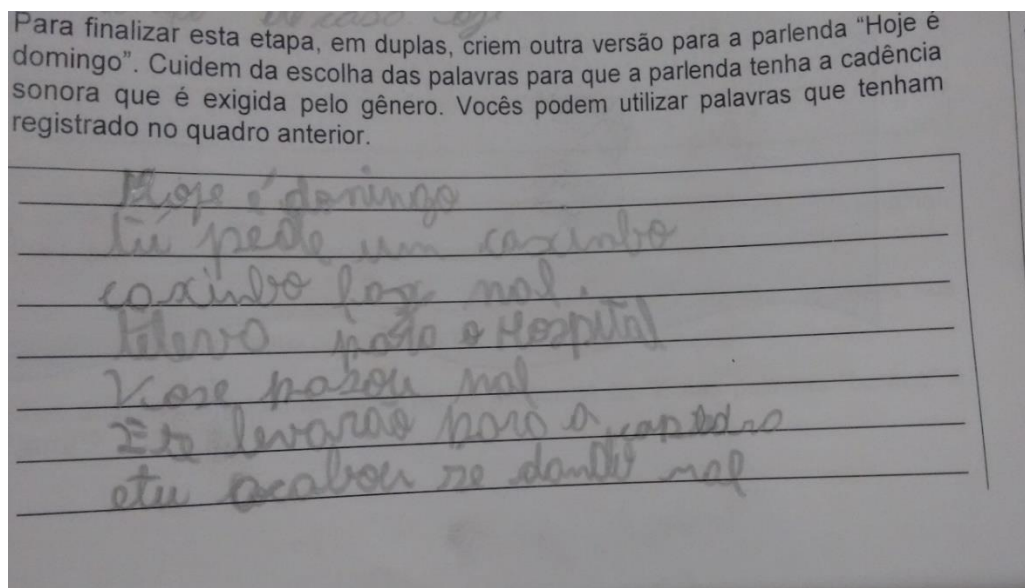 Para finalizar esta etapa, em duplas, criem outra versão para a parlenda “Hoje é
domingo”. Cuidem da escolha das palavras para que a parlenda tenha a cadência
sonora que é exigida pelo gênero. Vocês podem utilizar palavras que tenham
registrado no quadro anterior.
Hoje é domingo
tu pede um caximbo
caximbo faz mal.
televo para o Hospital
Vose pasou mal
E te levarão para a
etu acabou se dando mal